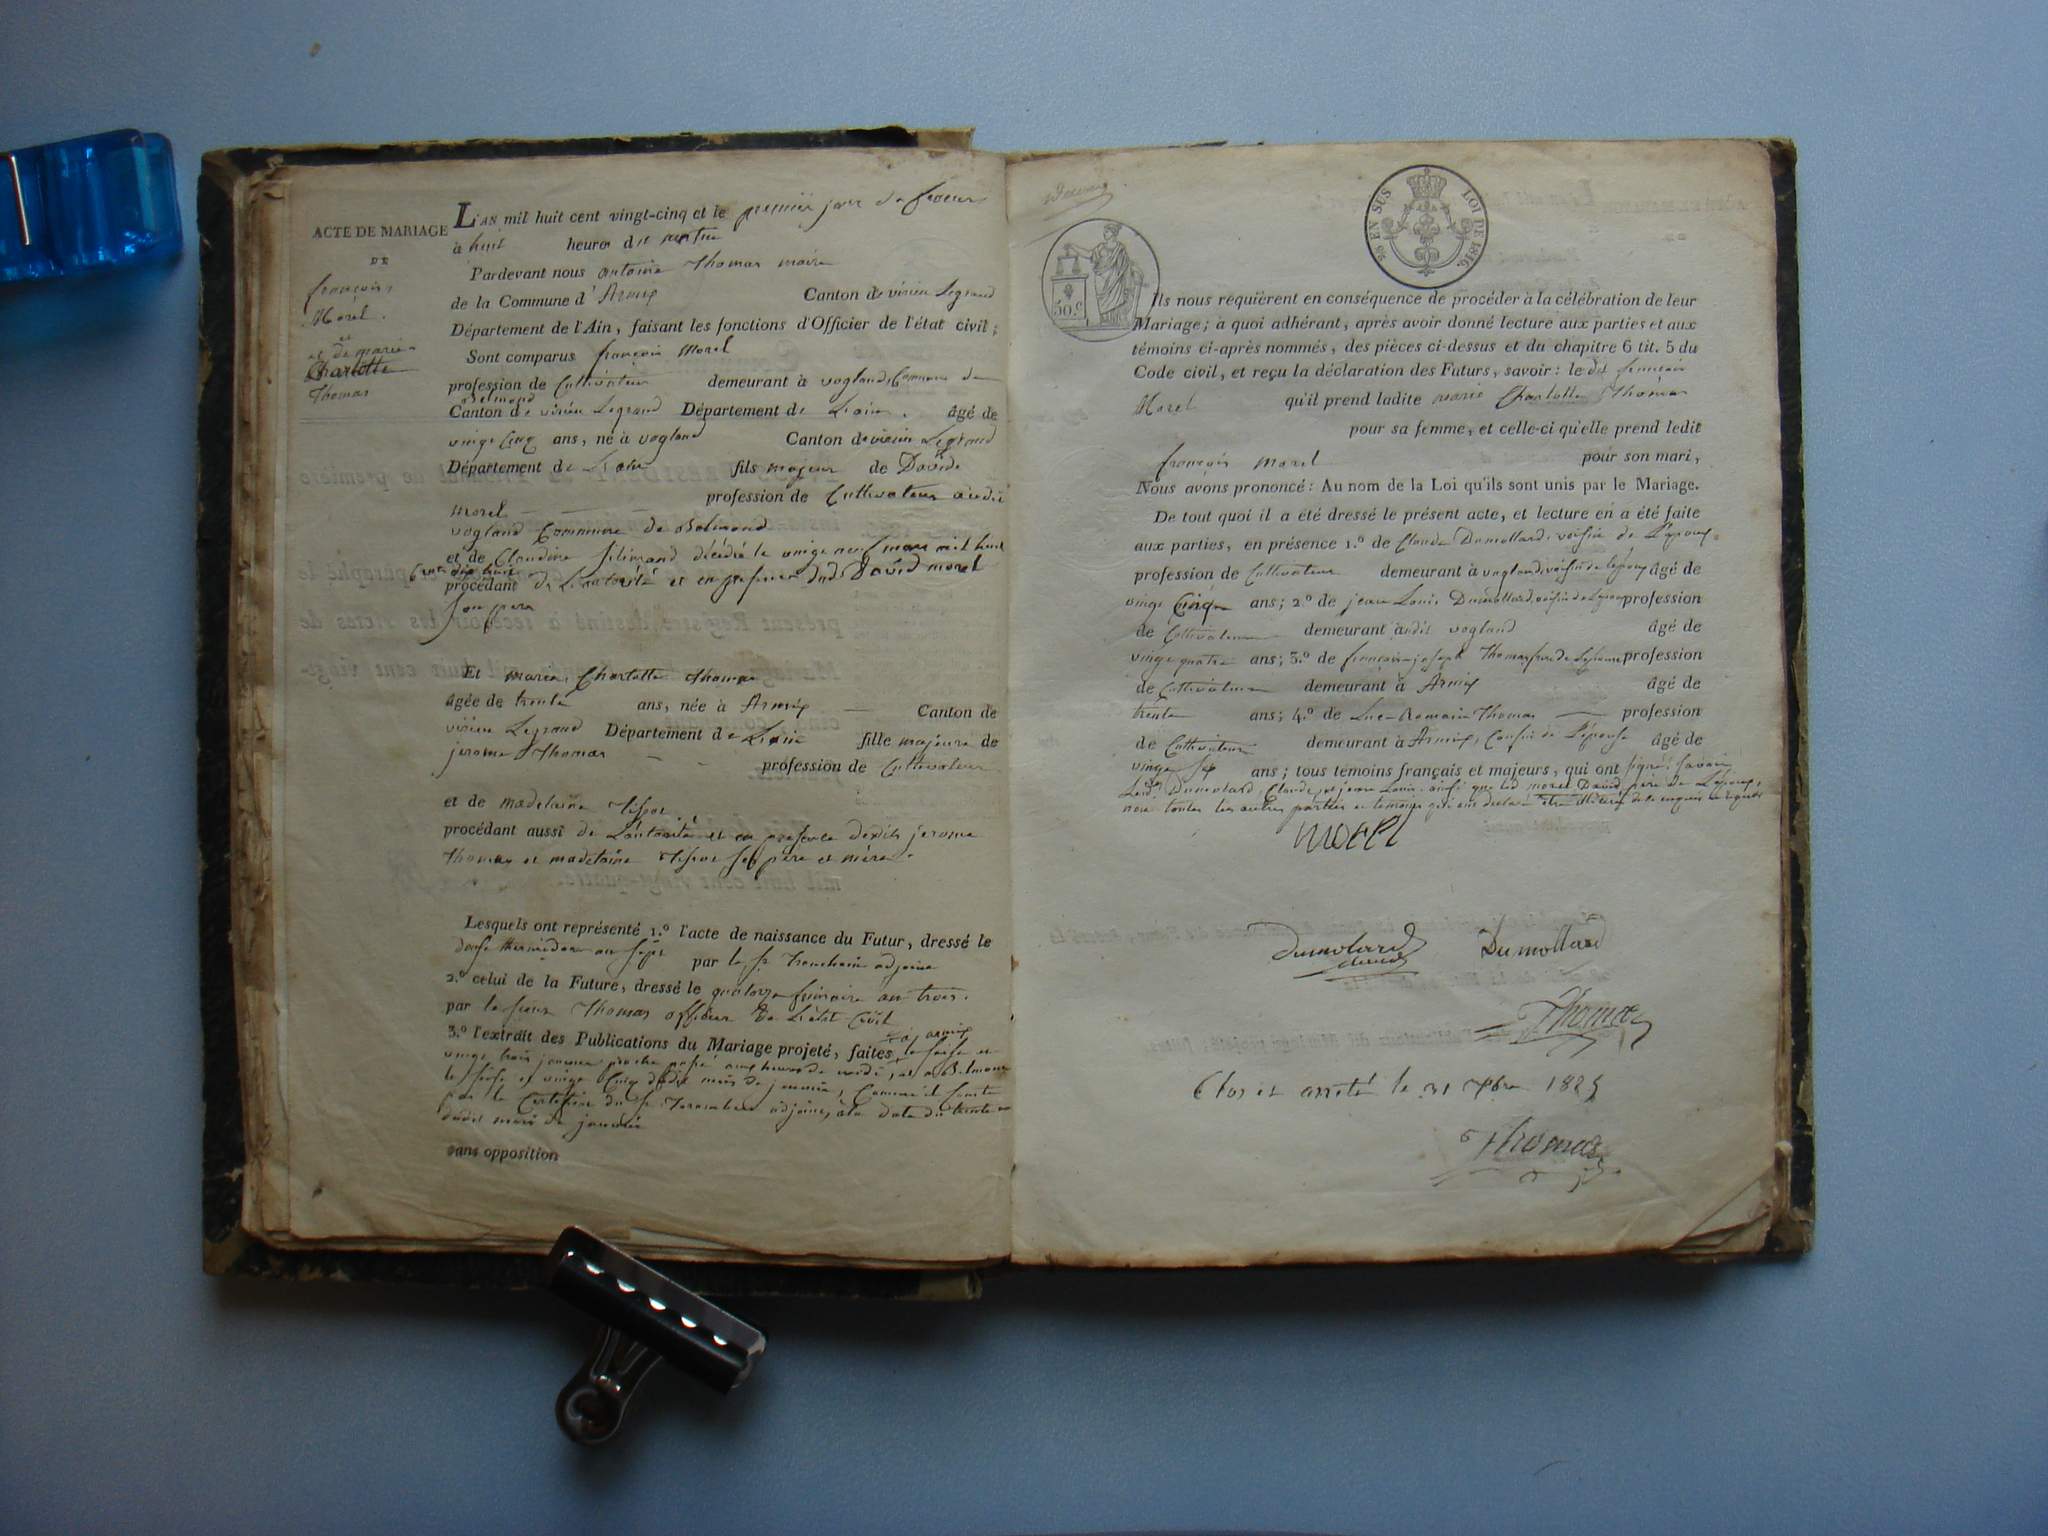 ACTE DE MARIAGE
DE
françois
Morel.
et
et de marie
Charlotte
Thomas
L'AN mil huit cent vingt-cinq et le premier jour de fevrier
à huit heures du matin
Pardevant nous antoine Thomas maire
de la Commune d'Armix Canton de virieu Legrand
Département de l'Ain, faisant les fonctions d'Officier de l'état civil;
Sont comparus françois Morel
profession de Cultivateur demeurant à vogland, Commune de
Belmond
Canton de virieu Legrand Département de Lain. âgé de
vingt Cinq ans, né à vogland Canton de virieu Legrand
Département de Lain fils majeur de David
morel profession de Cultivateur audit
vogland Commune de Belmond
et de Claudine décédé le vingt neuf mars mil huit
Cent dix huit
procédant de Lautorité et en presence dud. David morel
Son pere
Et marie Charlotte Thomas
âgée de trente ans, née à Armix Canton de
virieu Legrand Département de Lain fille majeure de
jerome Thomas profession de Cultivateur
et de madelaine Tissot
procédant aussi de Lautorité et en presence desdits jerome
Thomas et madelaine Tissot Ses père et mère.
Lesquels ont représenté 1.º l'acte de naissance du Futur, dressé le
douse thermidor an sept par le sr. adjoint
2.º celui de la Future, dressé le quatorze frimaire an trois.
par le sieur Thomas officier de L'état Civil
3.º l'extrait des Publications du Mariage projeté, faites à armix le seise et
vingt trois janvier proche passé aux heures de midi, et a Belmond
le seise et vingt Cinq dudit mois de janvier, Comme il Conste
par le Certificat du sr. adjoint, à la date du trente
dudit mois de janvier
sans opposition
50.C
EN SUS LOI DE 1816.
Ils nous requièrent en conséquence de procéder à la célébration de leur
Mariage; à quoi adhérant, après avoir donné lecture aux parties et aux
témoins ci-après nommés, des pièces ci-dessus et du chapitre 6 tit. 5 du
Code civil, et reçu la déclaration des Futurs, savoir: le dit francois
Morel qu'il prend ladite marie Charlotte Thomas
pour sa femme, et celle-ci qu'elle prend ledit
françois morel pour son mari,
Nous avons prononcé: Au nom de la Loi qu'ils sont unis par le Mariage.
De tout quoi il a été dressé le présent acte, et lecture en a été faite
aux parties, en présence 1.º de Claude Dumollard, voisin de L'epoux
profession de Cultivateur demeurant à vogland, voisin de lepoux âgé de
vingt Cinq ans; 2.º de jean Louis Dumollard, voisin de Lepoux profession
de Cultivateur demeurant audit vogland âgé de
vingt quatre ans; 3.º de françois joseph Thomas frere de Lepouse profession
de Cultivateur demeurant à Armix âgé de
trente ans; 4.º de Luc Romain Thomas profession
de Cultivateur demeurant à Armix, Cousin de l'épouse âgé de
vingt sept ans; tous témoins français et majeurs, qui ont signé, savoir
Lesd. Dumolard, Claude, et jean Louis ainsi que led. morel David père de L'époux,
non toutes les autres parties et temoins qui ont declaré être illitérés de ce enquis et requis
morel
Dumolard
Dumollard
Thomas
Clos et arreté le 31 Xbre 1825
Thomas